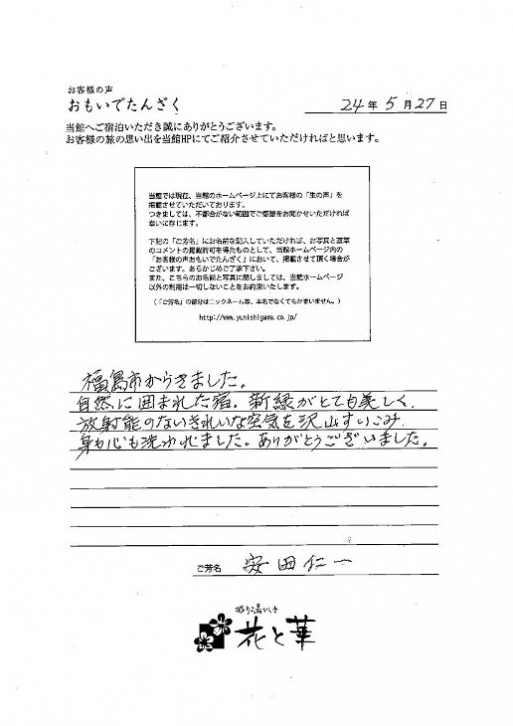 お客様の声
おもいでたんざく
24年 5月27日
当館へご宿泊いただき誠にありがとうございます。
お客様の旅の思い出を当館HPにてご紹介させていただければと思います。
当館では現在、当館のホームページ上にてお客様の「生の声」を
掲載させていただいております。
つきましては、不都合がない範囲でご感想をお聞かせいただければ
幸いに存じます。
下記の「ご芳名」にお名前を記入していただければ、お写真と直筆
のコメントの掲載許可を得たものとして、当館ホームページ内の
「お客様の声おもいでたんざく」において、掲載させて頂く場合が
ございます。あらかじめご了承下さい。
また、こちらのお名前と写真に関しましては、当館ホームページ
以外の利用は一切しないことをお約束いたします。
(「ご芳名」の部分はニックネーム等、本名でなくてもかまいません。)
http://www.yunishigawa.co.jp/
福島市からきました。
自然に囲まれた宿。新緑がとても美しく、
放射能のないきれいな空気を沢山すいこみ
身も心も洗われました。ありがとうございました。
ご芳名 安田仁一
花と華